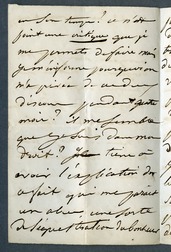 en son temps? ce n'est
point une critique que je
me permets de faire mais
je
m'a privée de
discours pendant quatre
mois? il me semble
que je suis dans mon
droit? Je tiens à
avoir l'explication de
ce fait qui me parait
un abus, une sorte
de séquestration du bonheur